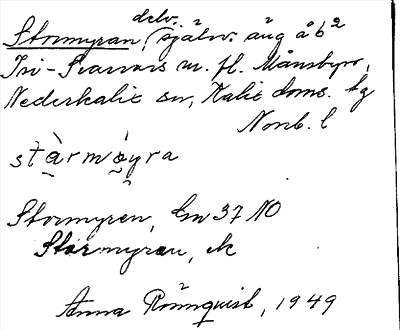 Stormyran, delv. själv. äng å b 2
Tri-Svarvars m. fl. Månsbyn,
Nederkalix sn, Kalix doms. tg
Norrb. l
stàrmỳra
Stormyren, Gen 37 NO
Stormyran, ek
Anna Rönnquist, 1949